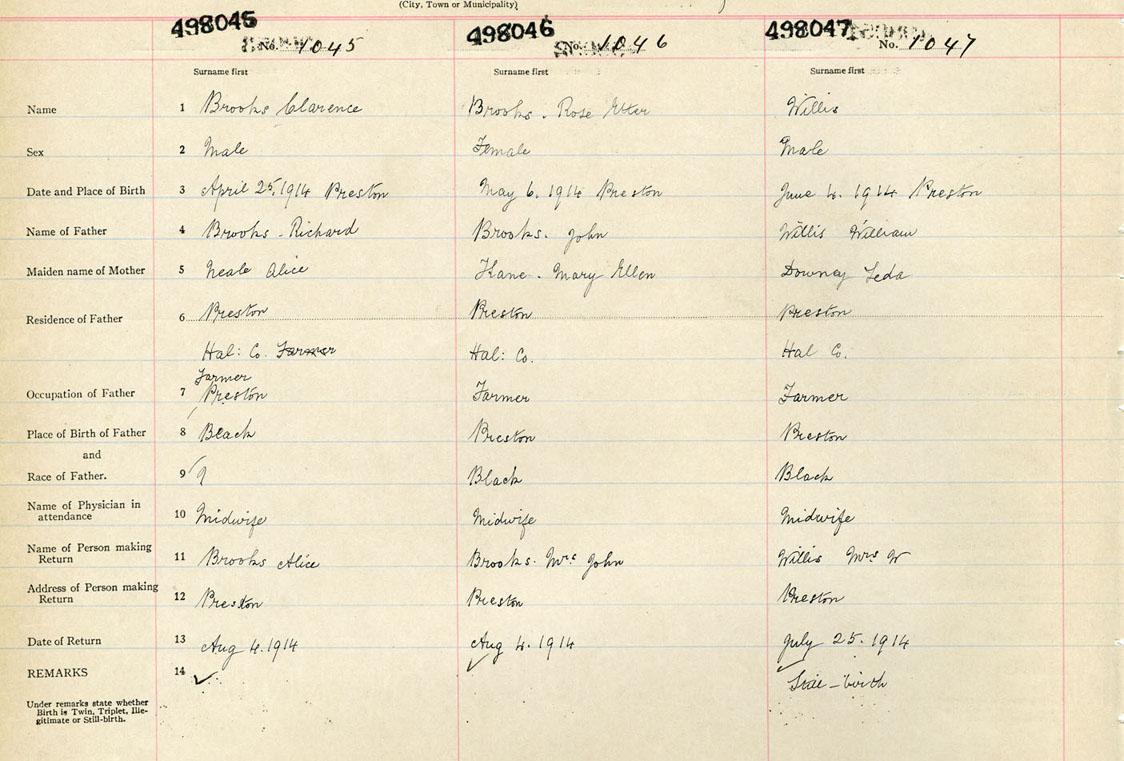 (City, Town or Municipality)
498045 498046 498047
No. 1045 No. 1046 No. 1047
Surname first Surname first Surname first
Name 1 Brooks Clarence Brooks. Rose Etter Willis
Sex 2 Male Female Male
Date and Place of Birth 3 April 25, 1914 Preston May 6. 1914 Preston June 4. 1914 Preston
Name of Father 4 Brooks - Richard Brooks. John Willis William
Maiden name of Mother 5 Neale Alice Kane. Mary Ellen Downey Leda
Residence of Father 6 Preston Preston Preston
Hal: Co. Farmer Hal: Co. Hal Co.
Farmer
Occupation of Father 7 Preston Farmer Farmer
Place of Birth of Father 8 Black Preston Preston
and
Race of Father. 9 Black Black
Name of Physician in
attendance 10 Midwife Midwife Midwife
Name of Person making
Return 11 Brooks Alice Brooks. Mrs John Willis Mrs W
Address of Person making
Return 12 Preston Preston Preston
Date of Return 13 Aug 4. 1914 Aug 4. 1914 July 25. 1914
REMARKS 14 ✓ ✓ ✓
birth
Under remarks state whether
Birth is Twin, Triplet, Ille-
gitimate or Still-birth.